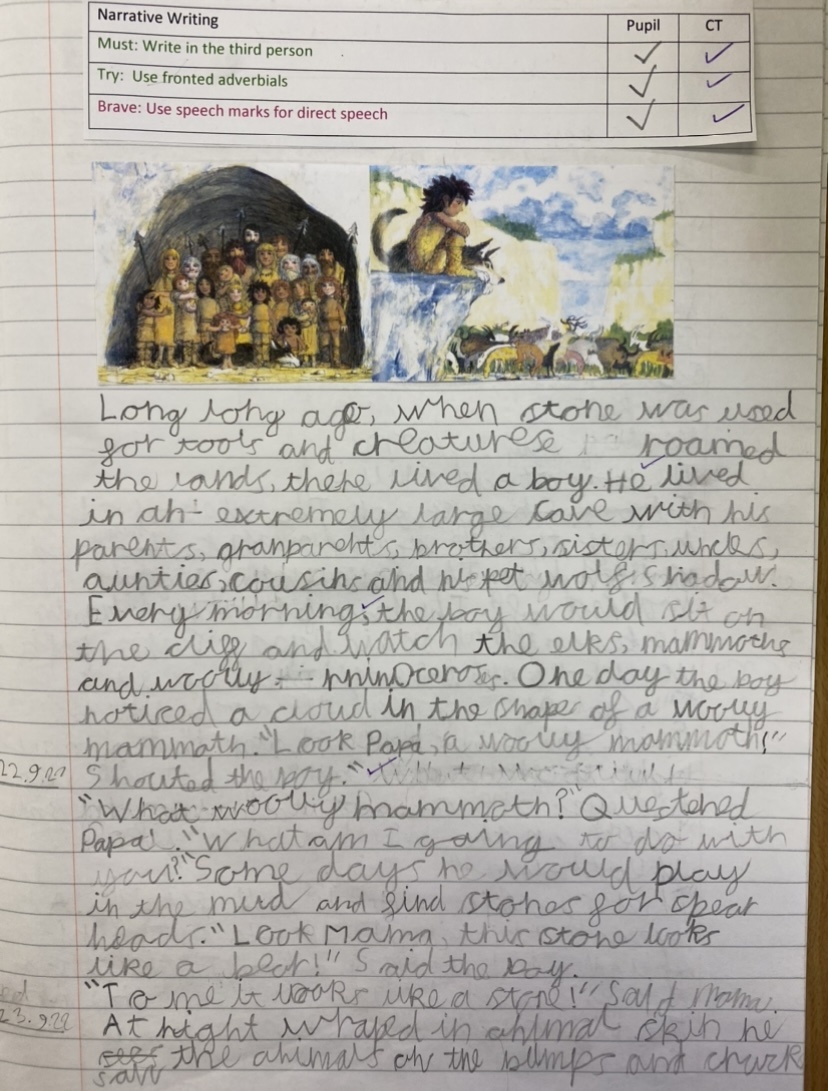 Narrative Writing Pupil CT
Must: Write in the third person
Try: Use fronted adverbials
Brave: Use speech marks for direct speech
Long long ago, when stone was used
for tools and creatures roamed
the lands, there lived a boy. He lived
in an extremely large cave with his
parents, granparents, brothers, sisters, uncles,
aunties, cousins and his pet wolf Shadow.
Every morning, the boy would sit on
the cliff and watch the elks, mammoths
and woolly rhinoceroses. One day the boy
noticed a cloud in the shape of a woolly
mammoth. "Look Papa, a woolly mammoth!"
22.9.20
Shouted the boy."
"What woolly mammoth?" Questened
Papa. "What am I going to do with
you?" Some days he would play
in the mud and find stones for spear
heads. "Look Mama, this stone looks
like a bear!" Said the boy.
"To me it looks like a stone!" Said Mama.
23.9.20
At night wraped in animal skin he
saw the animals on the bumps and